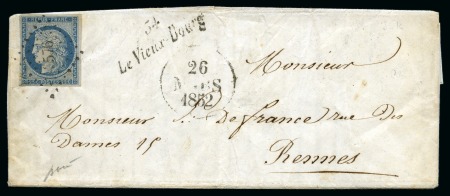 REPUB. FRANC.
54
Le Vieux-Bourg
26
MARS
1852
Monsieur
Monsieur De france rue Des
Dames 15
Rennes